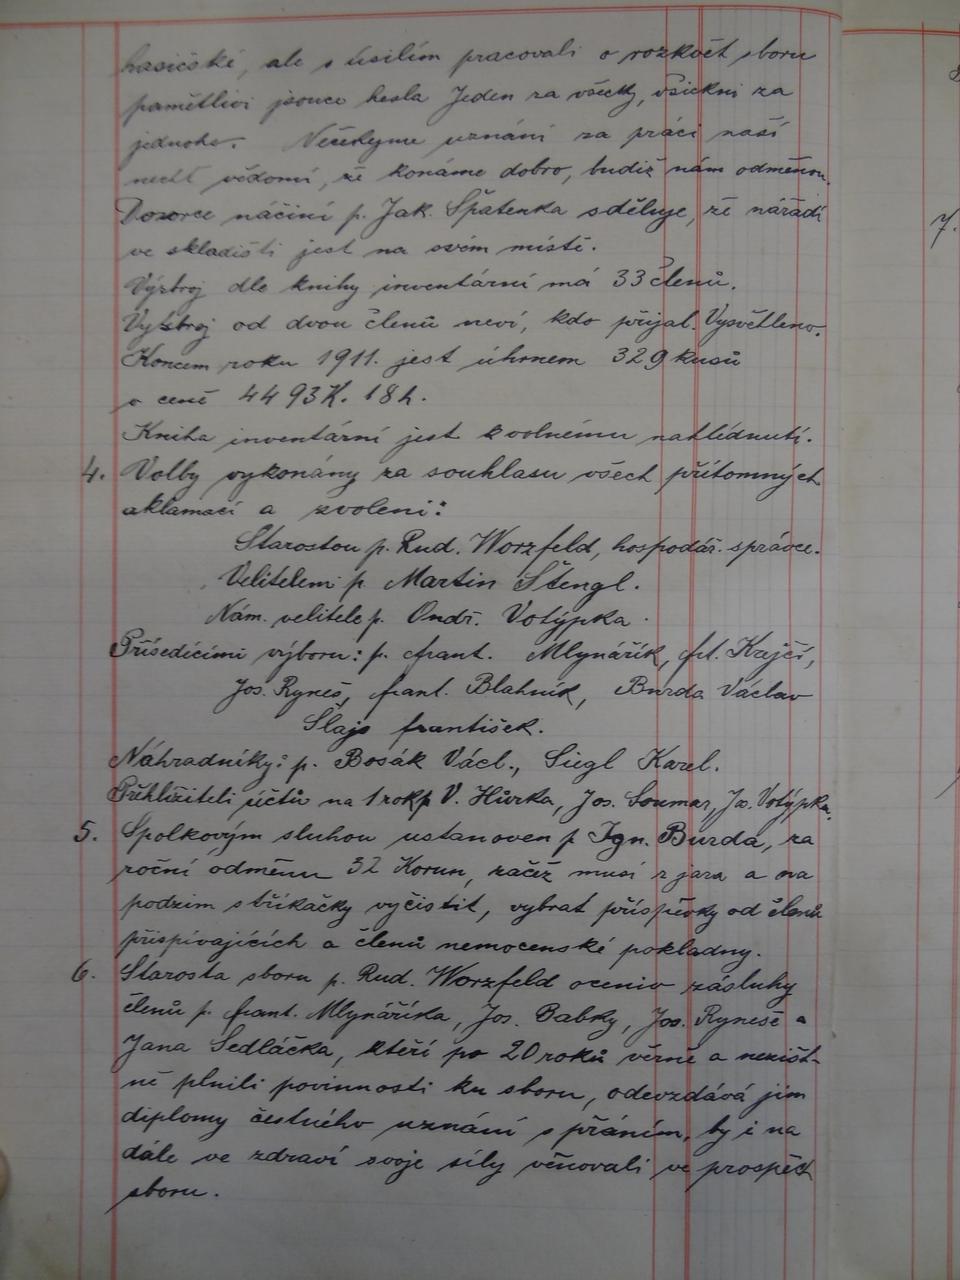 hasičské, ale s úsilím pracovali o rozkvět sboru
pamětlivi jsouce hesla Jeden za všecky, všickni za
jednoho. Nečekejme uznání za práci naší
nechť vědomí, že konáme dobro, budiž nám odměnou.
Dozorce náčiní p. Jak. Špatenka sděluje, že nářadí
ve skladišti jest na svém místě.
Výzbroj dle knihy inventární má 33 členů.
Výzbroj od dvou členů neví, kdo přijal. Vysvětleno.
Koncem roku 1911. jest úhrnem 329 kusů
v ceně 4493 K. 18 h.
Kniha inventární jest k volnému nahlédnutí.
4. Volby vykonány za souhlasu všech přítomných
aklamací a zvoleni:
Starostou p. Rud. Worzfeld, hospodář. správce.
Velitelem p. Martin Štengl.
Nám. velitele p. Ondř. Votýpka.
Přísedícími výboru: p. Frant. Mlynářík, Fr. Krejčí,
Jos. Ryneš, Frant. Blahník, Burda Václav
Šlajs František.
Náhradníky: p. Bosák Václ., Siegl Karel.
Přehlížiteli účtů na 1 rok p V. Hůrka, Jos. Soumar, Jos. Votýpka.
5. Spolkovým sluhou ustanoven p Ign. Burda, za
roční odměnu 32 Korun, začež musí z jara a na
podzim stříkačky vyčistit, vybrat příspěvky od členů
přispívajících a členů nemocenské pokladny.
6. Starosta sboru p. Rud. Worzfeld oceniv zásluhy
členů p. Frant. Mlynáříka, Jos. Babky, Jos. Ryneše a
Jana Sedláčka, kteří po 20 roků věrně a nezišt-
ně plnili povinnosti ku sboru, odevzdává jim
diplomy čestného uznání s přáním, by i na
dále ve zdraví svoje síly věnovali ve prospěch
sboru.
7.